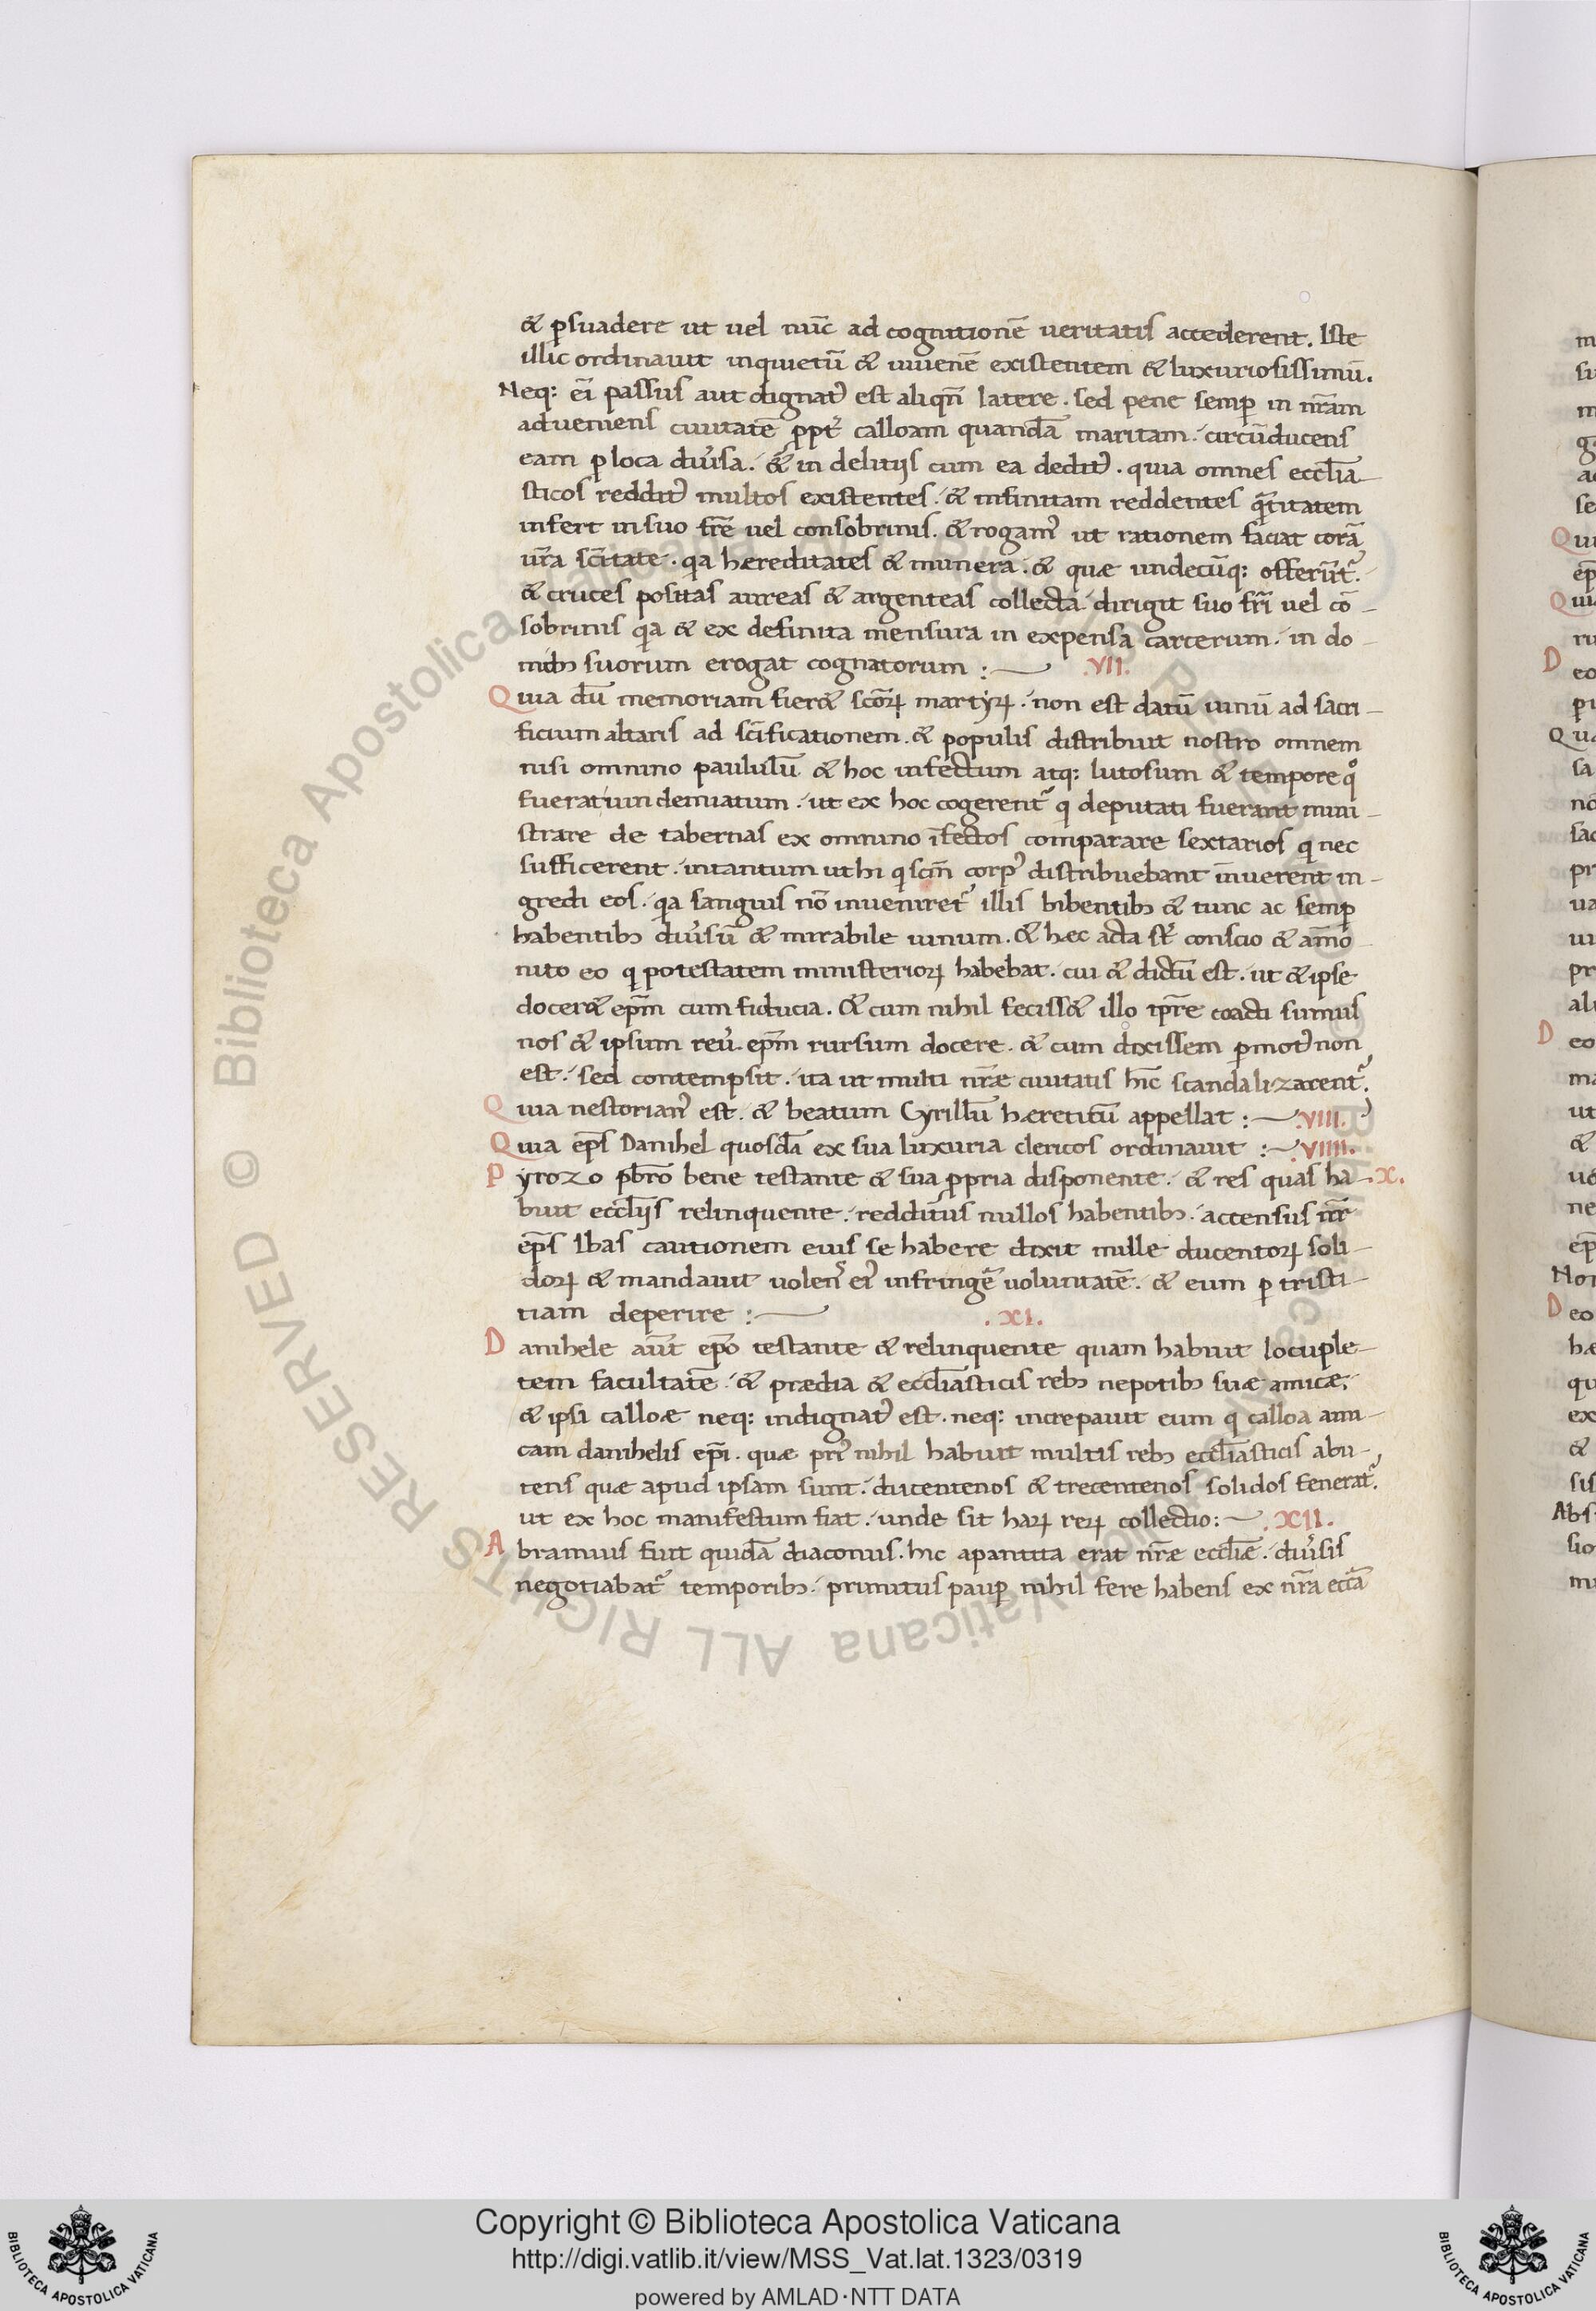 & ꝑsuadere ut uel nūc ad cognitionē ueritatis accederent. Iste
illic ordinauit inquietū & iuuenē existentem & luxuriosissimū.
Neq: ei passus aut dignat᾿ est aliqn̄ latere. sed pene semꝑ in nr̄am
adueniens ciuitatē ꝓpt̄ calloam quandā maritam. circūducens
eam ꝑ loca diūsa. & in delitijs cum ea dedit᾿. quia omnes eccl̄ia-
sticos reddit᾿ multos existentes. & infinitam reddentes q̄ntitatem
infert in suo fr̄e uel consobrinis. & rogam᾿ ut rationem faciat corā
ur̄a sc̄itate. qa hereditates & munera. & quæ undecūq: offerūt᾿.
& cruces positas aureas & argenteas collecta dirigit suo fr̄i uel cō-
sobrinis qa & ex definita mensura in expensa carcerum. in do-
mibꝫ suorum erogat cognatorum :— .VII.
Quia dū memoriam fier& sc̄oꝝ martyꝝ. non est datū uinū ad sacri-
ficium altaris ad sc̄ificationem. & populis distribuit nostro omnem
nisi omnino paululū & hoc infectum atq: lutosum & tempore qº
fuerat uindemiatum. ut ex hoc cogerent᾿ q deputati fuerant mini-
strare de tabernas ex omnino īfectos comparare sextarios q nec
sufficerent. intantum ut hi q sc̄m corp᾿ distribuebant inuerent in-
gredi eos. qa sanguis nō inueniret᾿ illis bibentibꝫ & tunc ac semꝑ
habentibꝫ diūsū & mirabile uinum. & hec acta st̄ conscio & am̄o
nito eo q potestatem ministerioꝝ habebat. cui & dictū est. ut & ipse
docer& ep̄m cum fiducia. & cum nihil feciss& illo ip̄re coacti sumus
nos & ipsum reū. ep̄m rursum docere. & cum dixissem ꝑmot᾿ non
est. sed contempsit. ita ut multi nr̄æ ciuitatis hīc scandalizarent᾿.
Quia nestorian᾿ est. & beatum Cyrillū hæretitū appellat :— .VIII.
Quia ep̄s Danihel quosdā ex sua luxuria clericos ordinauit :— .VIIII.
Pyrozo pb̄ro bene testante & sua ꝓpria disponente. & res quas ha- .X.
buit eccl̄ijs relinquente. redditus nullos habentibꝫ. accensus nr̄
ep̄s Ibas cautionem eius se habere dixit mille ducentoꝝ soli-
doꝝ & mandauit uolens ei᾿ infringē uoluntatē. & eum ꝑ tristi-
tiam deperire :— .XI.
Danihele aūt ep̄o testante & relinquente quam habuit locuple-
tem facultatē. & prædia & eccl̄iasticis rebꝫ nepotibꝫ suæ amicæ,
& ipsi calloæ neq: indignat᾿ est. neq: increpauit eum q calloa ami-
cam danihelis ep̄i. quæ pri᾿ nihil habuit multis rebꝫ eccl̄iasticis abu-
tens quæ apud ipsam sunt. ducentenos & trecentenos solidos fenerat᾿.
ut ex hoc manifestum fiat. unde sit haꝝ reꝝ collectio:— .XII.
Abramius fuit quidā diaconus. hic apantita erat nr̄æ eccl̄iæ. diūsis
negotiabat᾿ temporibꝫ. primitus pauꝑ nihil fere habens ex nr̄a eccl̄a
Copyright © Biblioteca Apostolica Vaticana
http://digi.vatlib.it/view/MSS_Vat.lat.1323/0319
powered by AMLAD·NTT DATA